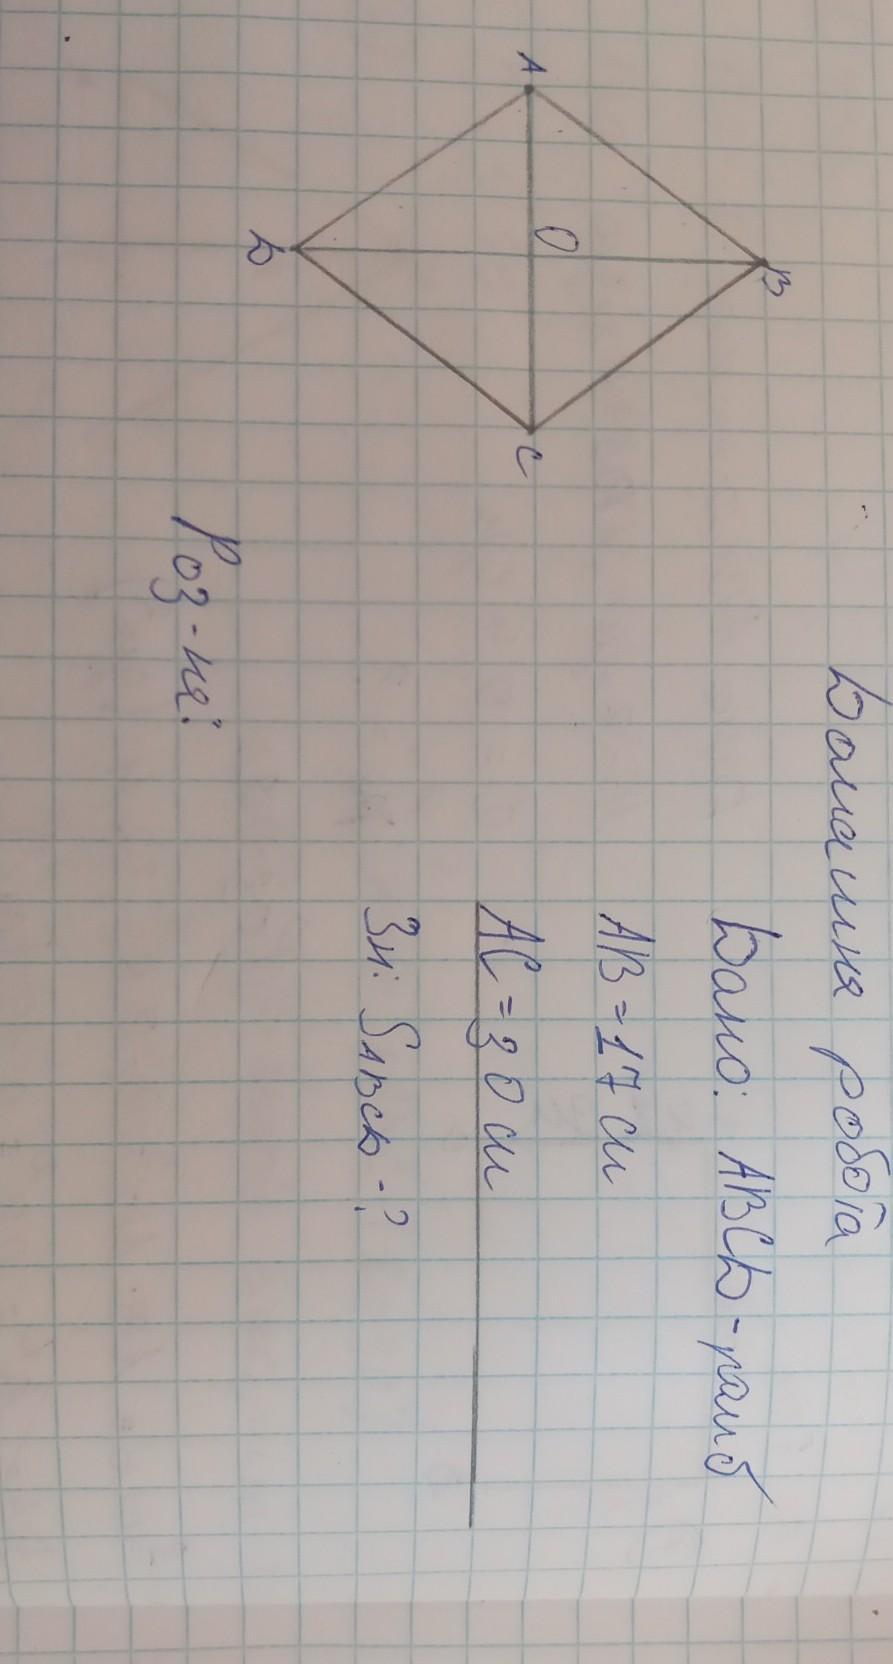 Домашня робота
Дано: ABCD-ромб
AB=17 см
AC=30 см
Зн: SABCD-?
B
A
O
C
D
Роз-ня: